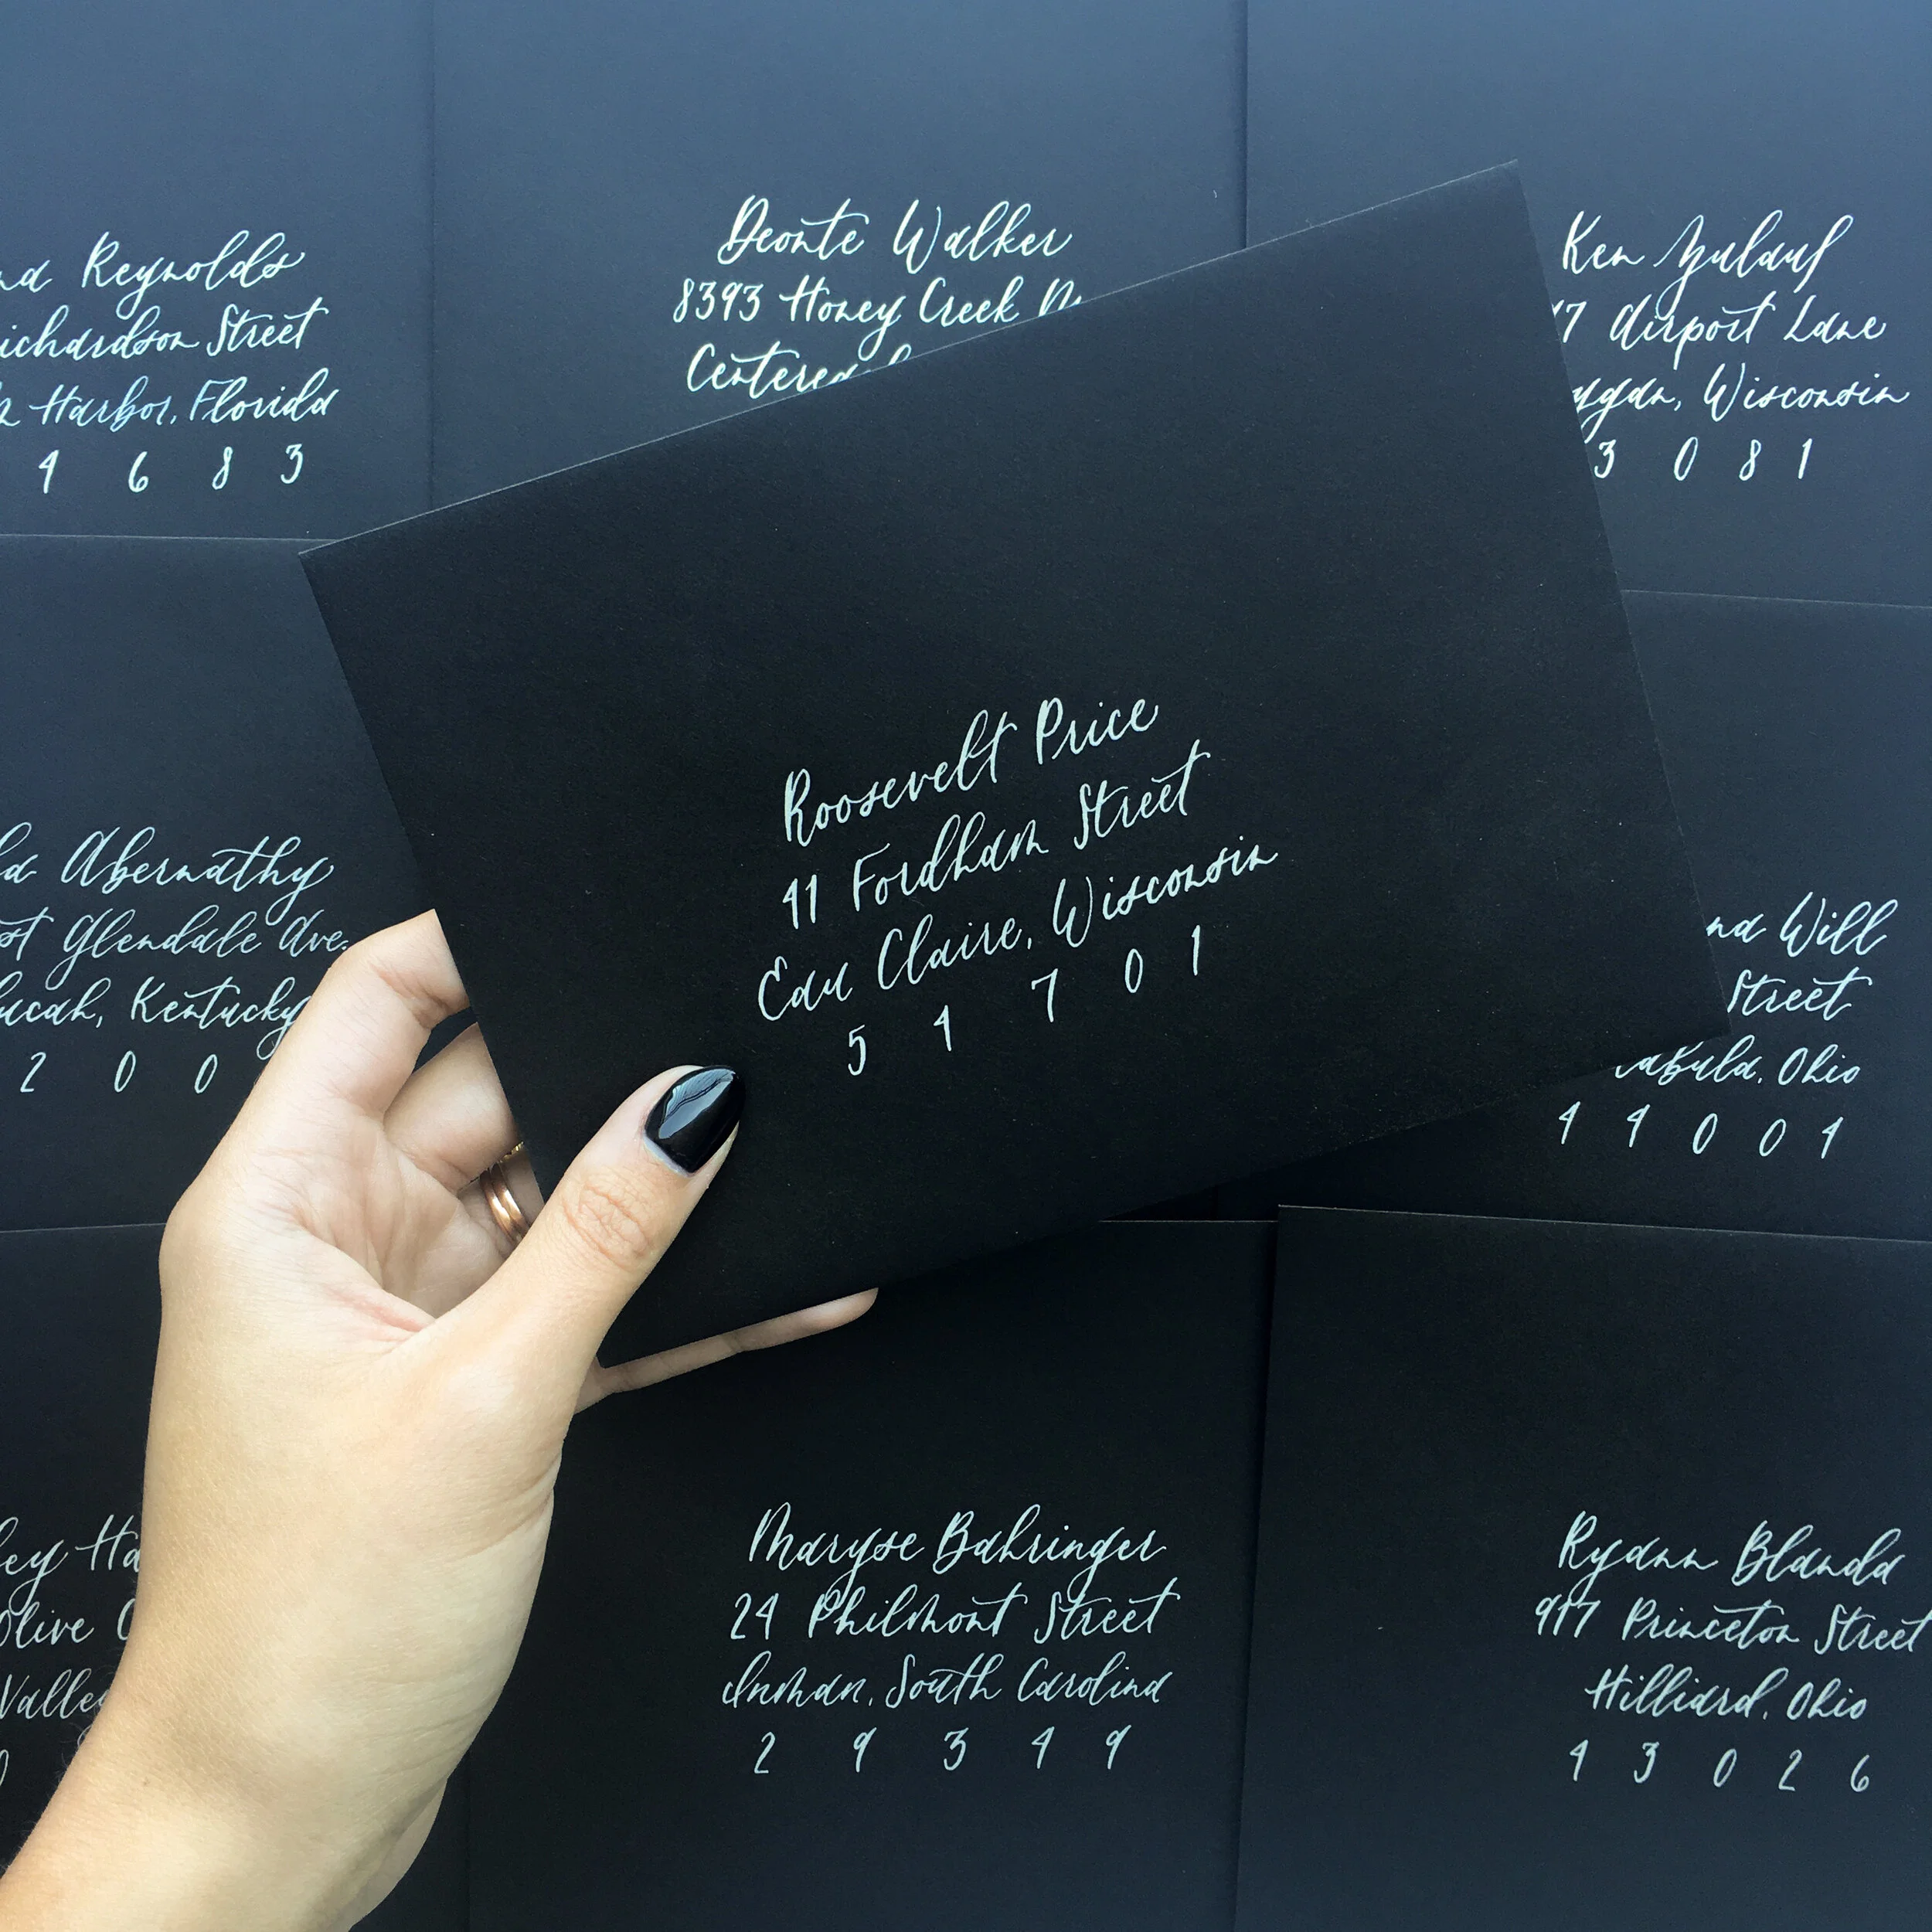 Reynolds
Street
Harbor, Florida
4 6 8 3
Deonte Walker
8393 Honey Creek
Ken Zulauf
7 Airport Lane
Wisconsin
3 0 8 1
Roosevelt Price
41 Fordham Street
Eau Claire, Wisconsin
5 4 7 0 1
Abernathy
Glendale Ave.
Kentucky
2 0 0
Will
Street
Ohio
4 4 0 0 4
Olive
Valley
Maryse Bahringer
24 Philmont Street
Inman, South Carolina
2 9 3 4 9
Ryann Blanda
917 Princeton Street
Hilliard, Ohio
4 3 0 2 6